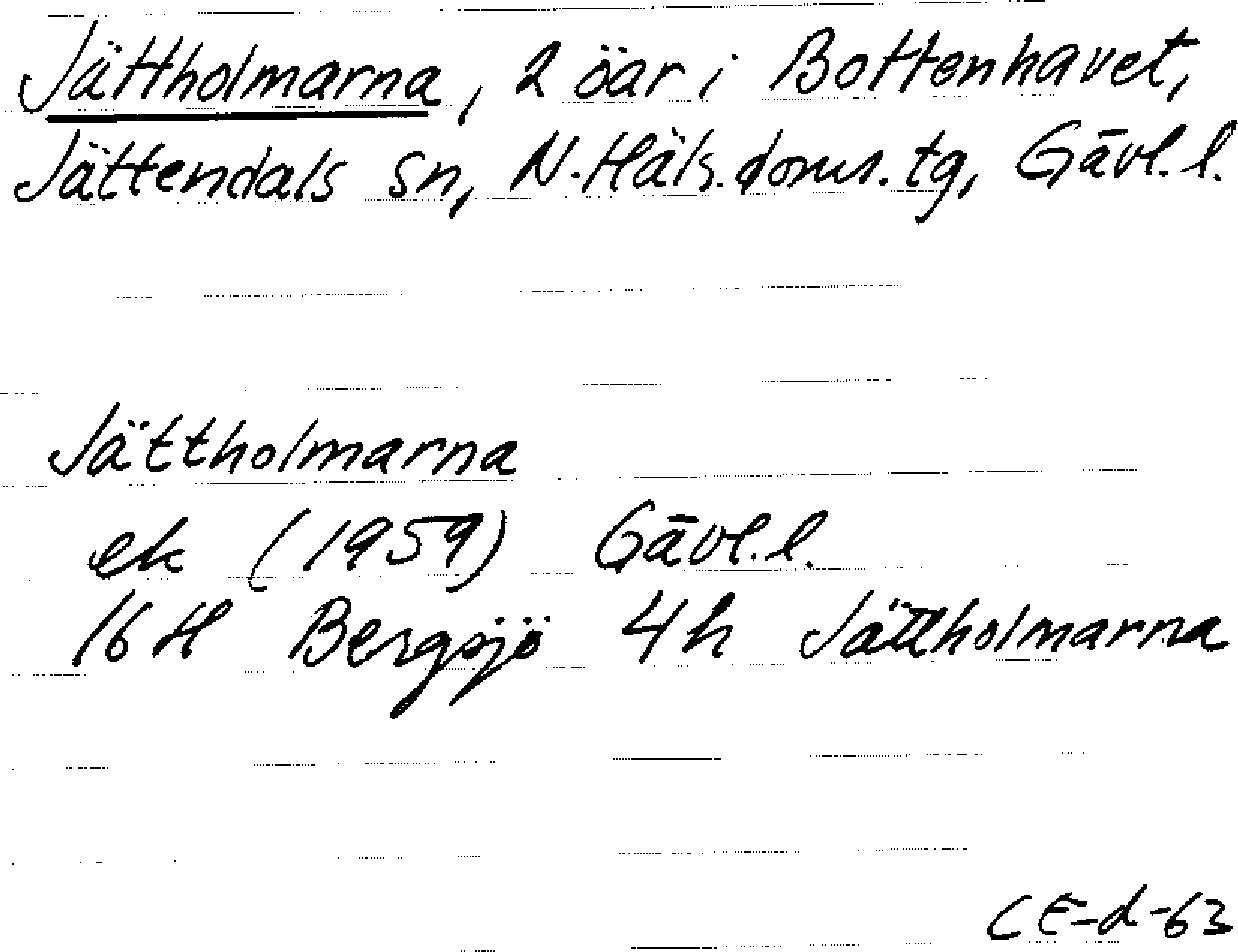 Jättholmarna, 2 öar i Bottenhavet,
Jättendals sn, N. Häls. doms. tg, Gävl. l.
Jättholmarna
ek (1959) Gävl. l.
16 H Bergsjö 4h Jättholmarna
CE-d-63